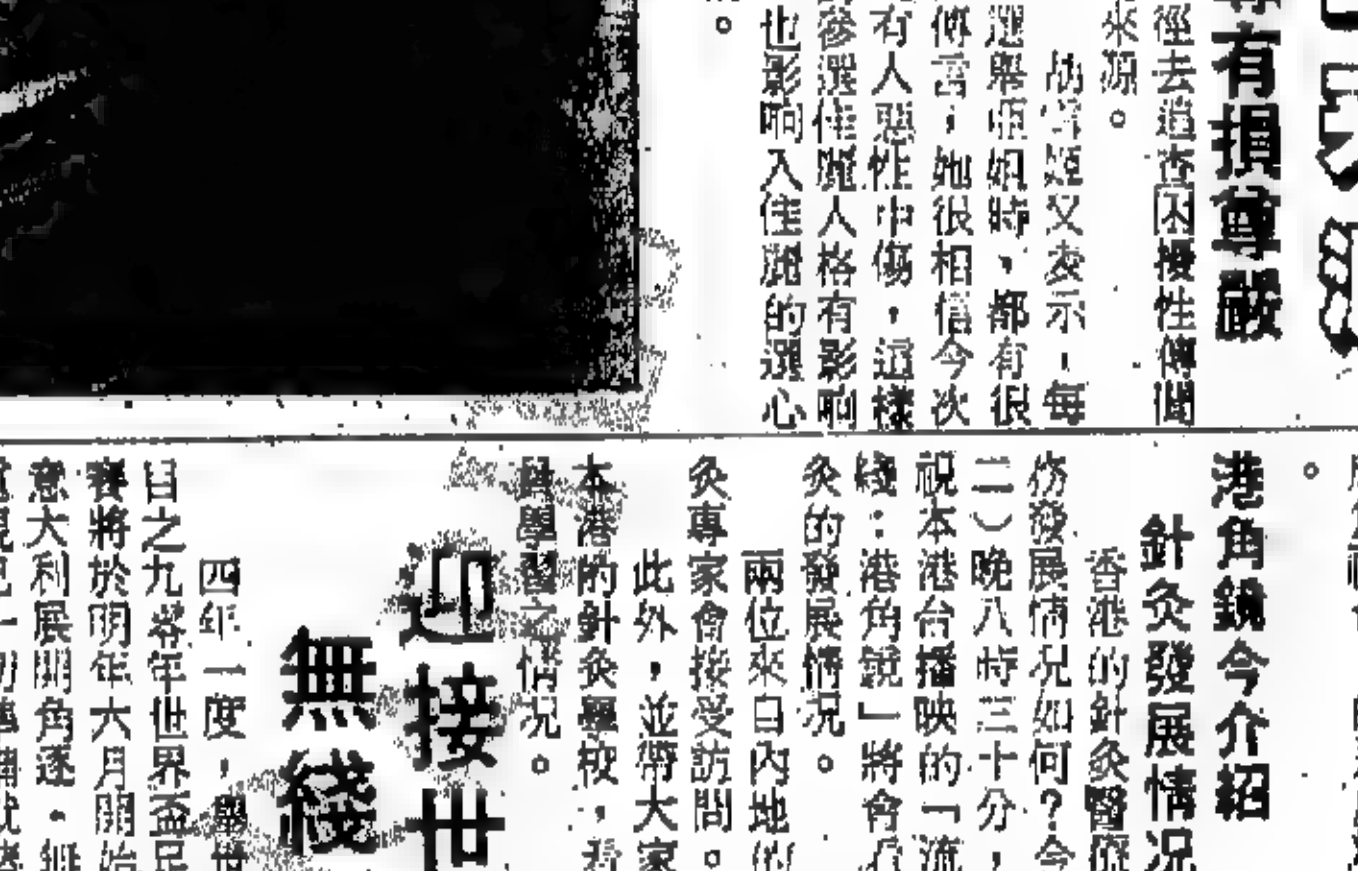 有損尊嚴
徑去追查困擾性傳聞
來源。
又表示，每
選舉亞姐時，都有很
傳言，她很相信今次
有人惡性中傷，這樣
參選佳麗人格有影响
也影响入佳麗的選心
。
港角鏡今介紹
針灸發展情況
香港的針灸醫療
發展情況如何？今
二）晚八時三十分，
視本港台播映的「流
綫：港角鏡」將會
灸的發展情況。
兩位來自內地的
灸專家會接受訪問。
此外，並帶大家
本港的針灸學校，看
學習之情況。
迎接世
無綫
四年一度，舉世
目之九零年世界盃足
賽將於明年六月開始
意大利展開角逐。無